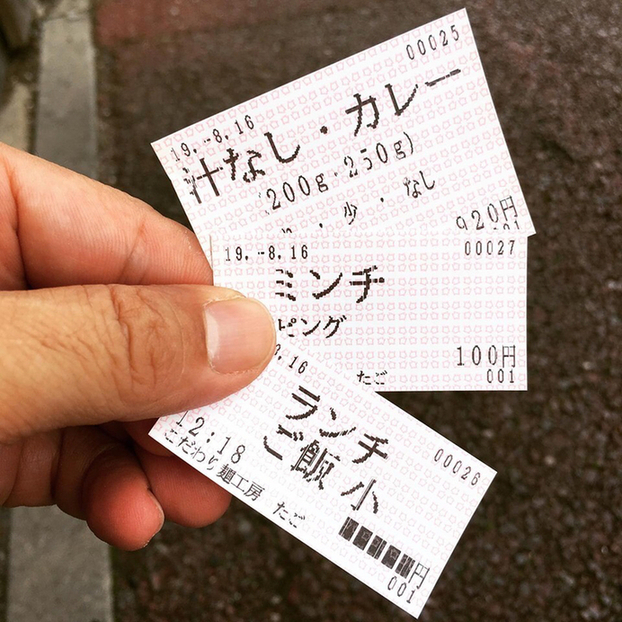 00025
19.-8.16
汁なし・カレー
(200g・250g)
・少・なし
920円
19.-8.16
00027
ミンチ
ピング
100円
たご
001
8.16
ランチ
00026
ご飯 小
12:18
こだわり麺工房 たご
円
001